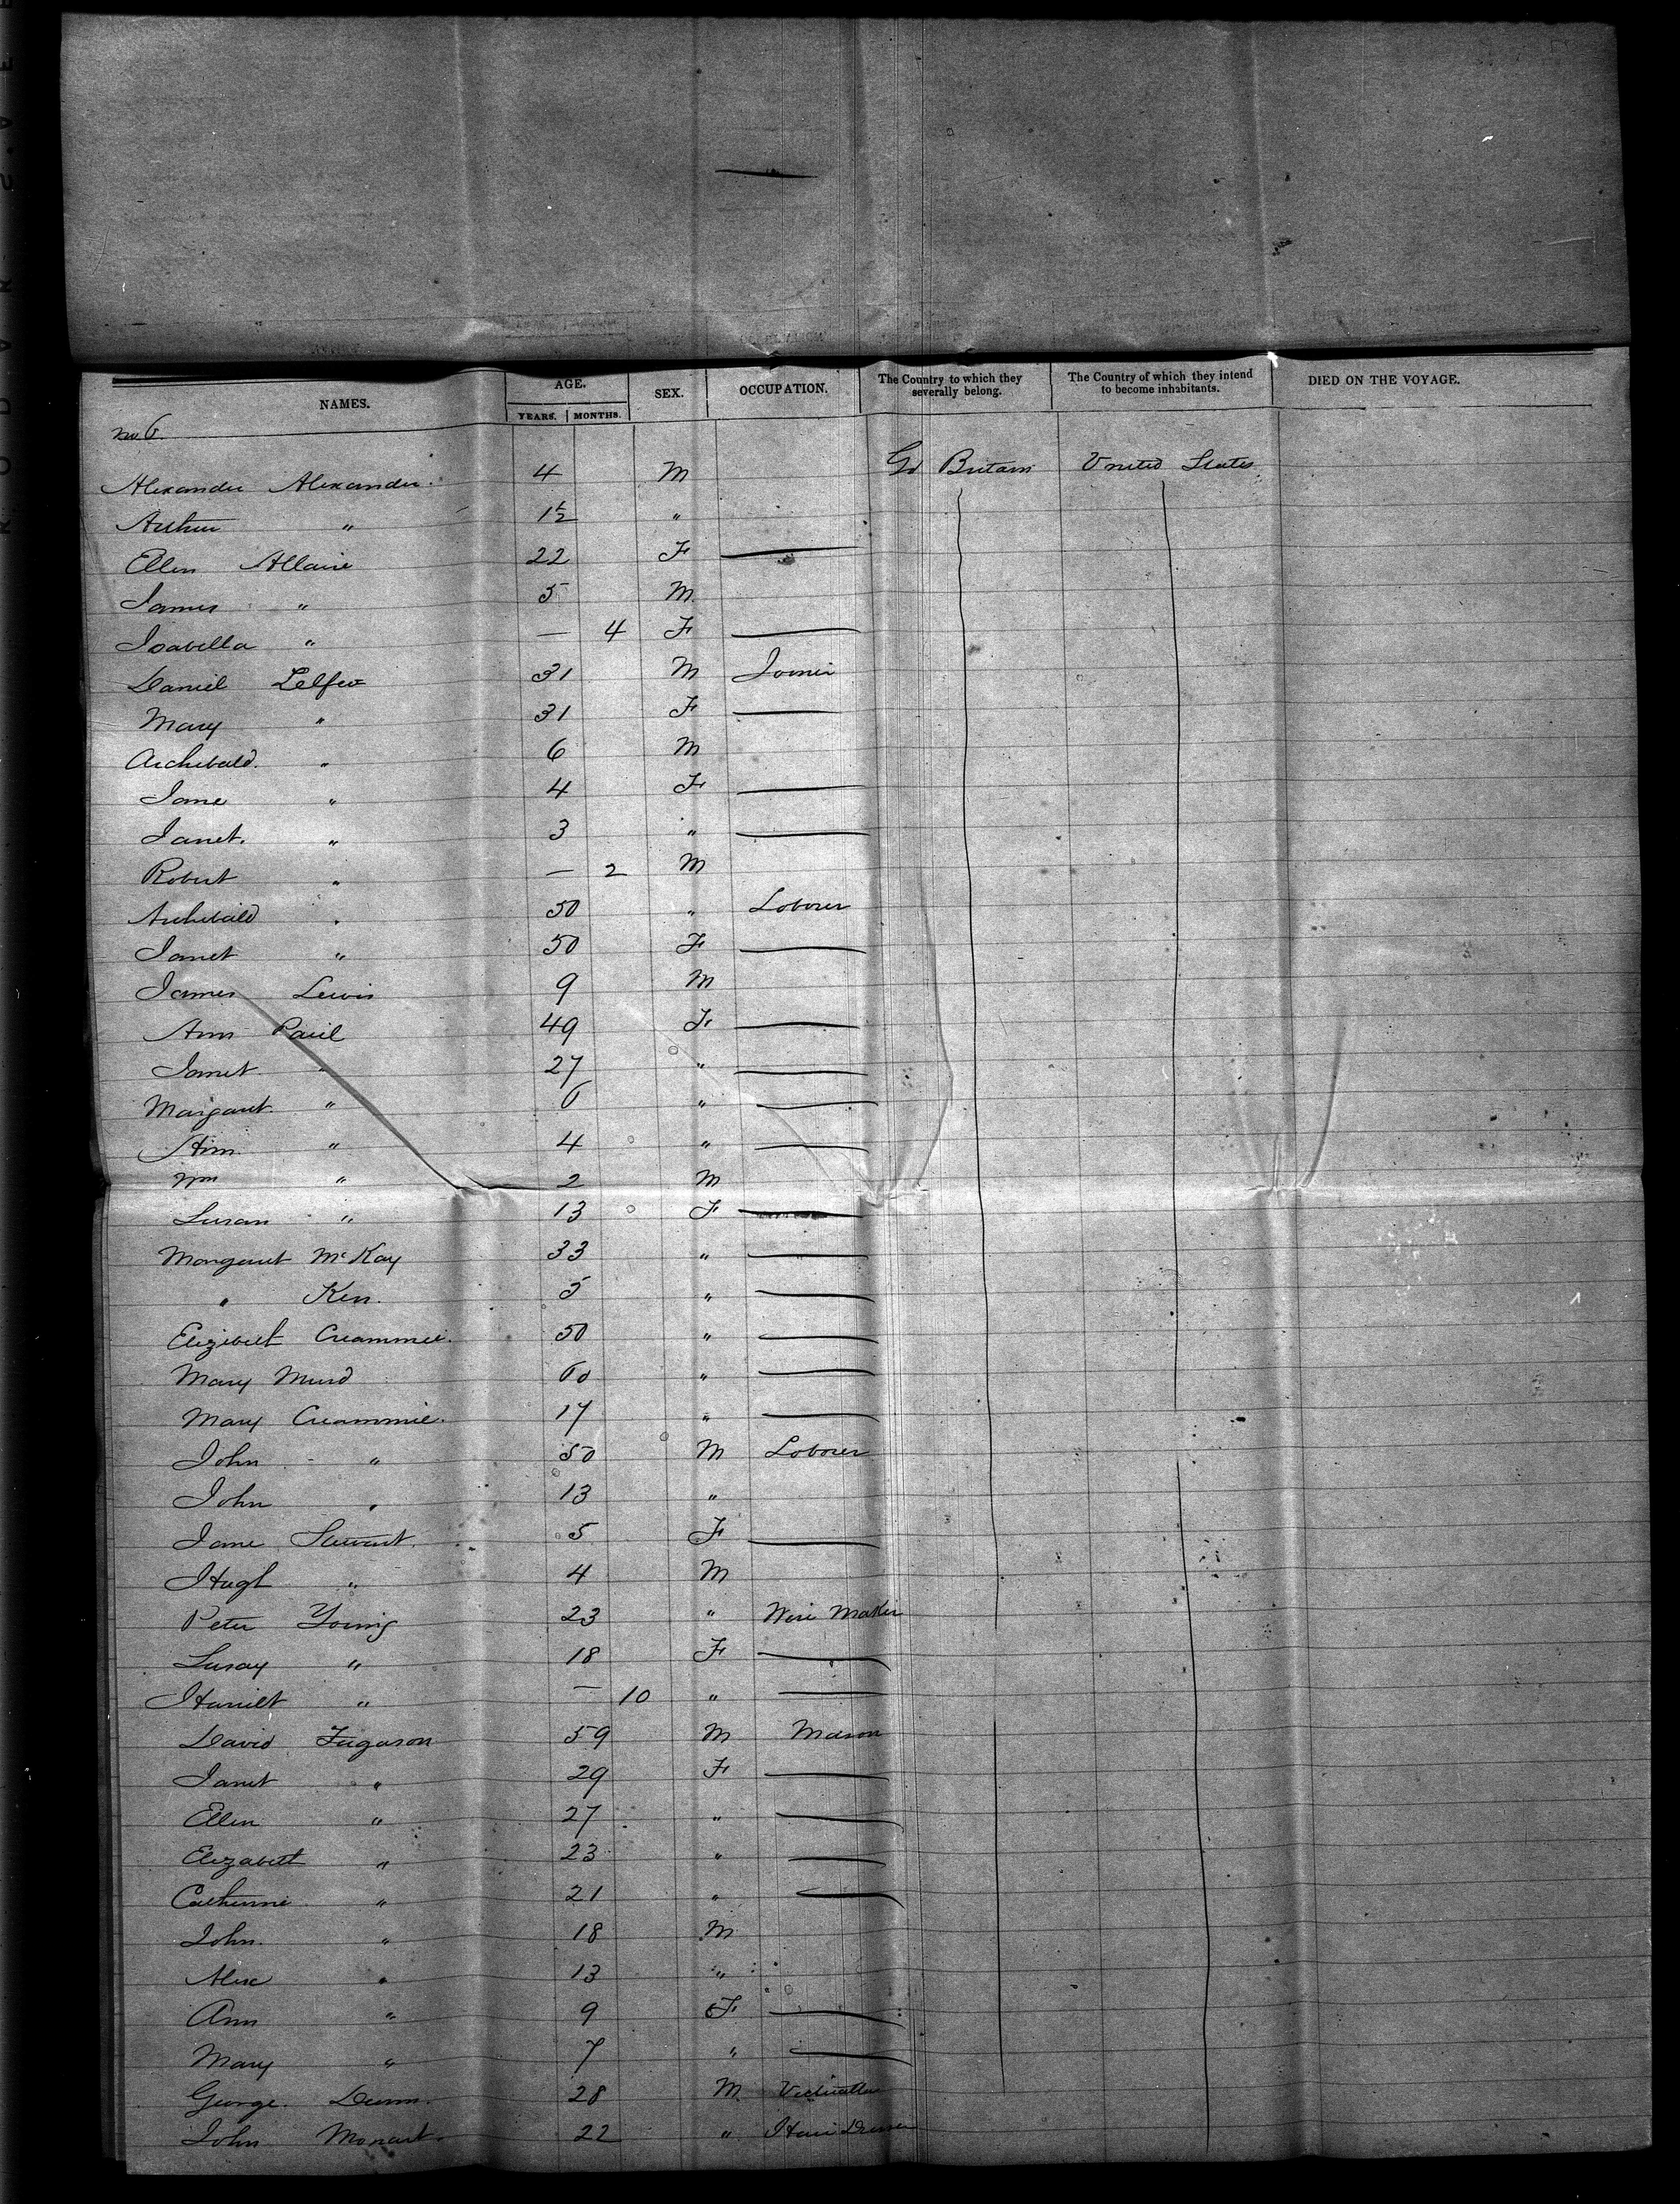 NAMES. AGE. SEX. OCCUPATION. The Country to which they severally belong. The Country of which they intend to become inhabitants. DIED ON THE VOYAGE.
YEARS. MONTHS.
No 6.
Alexander Alexander. 4 M Gt Britain United States
Arthur " 1½ "
Ellen Allaire 22 F —
James " 5 M
Isabella " — 4 F —
Daniel Telfer 31 M Joiner
Mary " 31 F —
Archibald. " 6 M
Jane " 4 F —
Janet. " 3 " —
Robert " — 2 M
Archibald " 50 " Laborer
Janet " 50 F —
James Lewis 9 M
Ann Paul 49 F —
Janet " 27 " —
Margaret " 6 " —
Ann " 4 " —
Wm " 2 M
Susan " 13 F —
Margaret McKay 33 " —
" Kerr. 5 " —
Elizibeth 50 " —
Mary 60 " —
Mary 17 " —
John " 50 M Laborer
John " 13 "
Jane Stewart. 5 F —
Hugh " 4 M
Peter Young 23 " Wire Maker
Susay " 18 F —
Harriet " — 10 " —
David Fugason 59 M Mason
Janet " 29 F —
Ellen " 27 " —
Elizabeth " 23 " —
Catherine " 21 " —
John. " 18 M
Alex " 13 "
Ann " 9 F —
Mary " 7 " —
George. Dunn. 28 M Victualler
John 22 " Hair Dresser